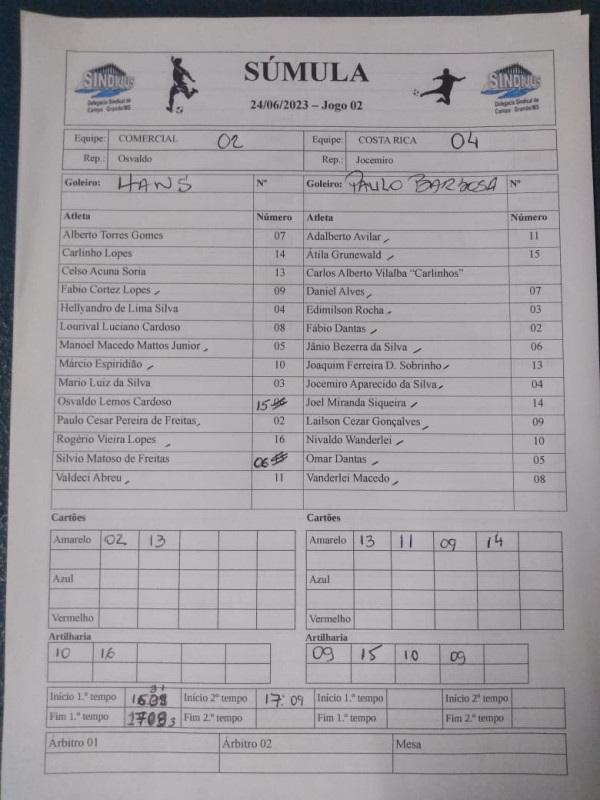 SINDIJUS SÚMULA SINDIJUS
Delegacia Sindical de Campo Grande/MS 24/06/2023 – Jogo 02 Delegacia Sindical de Campo Grande/MS
Equipe: COMERCIAL 02 Equipe: COSTA RICA 04
Rep.: Osvaldo Rep.: Jocemiro
Goleiro: HANS Nº Goleiro: PAULO BARBOSA Nº
Atleta Número Atleta Número
Alberto Torres Gomes 07 Adalberto Avilar 11
Carlinho Lopes 14 Átila Grunewald 15
Celso Acuna Soria 13 Carlos Alberto Vilalba "Carlinhos"
Fabio Cortez Lopes 09 Daniel Alves 07
Hellyandro de Lima Silva 04 Edimilson Rocha 03
Lourival Luciano Cardoso 08 Fábio Dantas 02
Manoel Macedo Mattos Junior 05 Jânio Bezerra da Silva 06
Márcio Espiridião 10 Joaquim Ferreira D. Sobrinho 13
Mario Luiz da Silva 03 Jocemiro Aparecido da Silva 04
Osvaldo Lemos Cardoso 15 Joel Miranda Siqueira 14
Paulo Cesar Pereira de Freitas 02 Lailson Cezar Gonçalves 09
Rogério Vieira Lopes 16 Nivaldo Wanderlei 10
Silvio Matoso de Freitas 06 Omar Dantas 05
Valdeci Abreu 11 Vanderlei Macedo 08
Cartões Cartões
Amarelo 02 13 Amarelo 13 11 09 14
Azul Azul
Vermelho Vermelho
Artilharia Artilharia
10 16 09 15 10 09
Início 1.º tempo Início 2º tempo 17:09 Início 1.º tempo Início 2º tempo
Fim 1.º tempo Fim 2.º tempo Fim 1.º tempo Fim 2.º tempo
Árbitro 01 Árbitro 02 Mesa